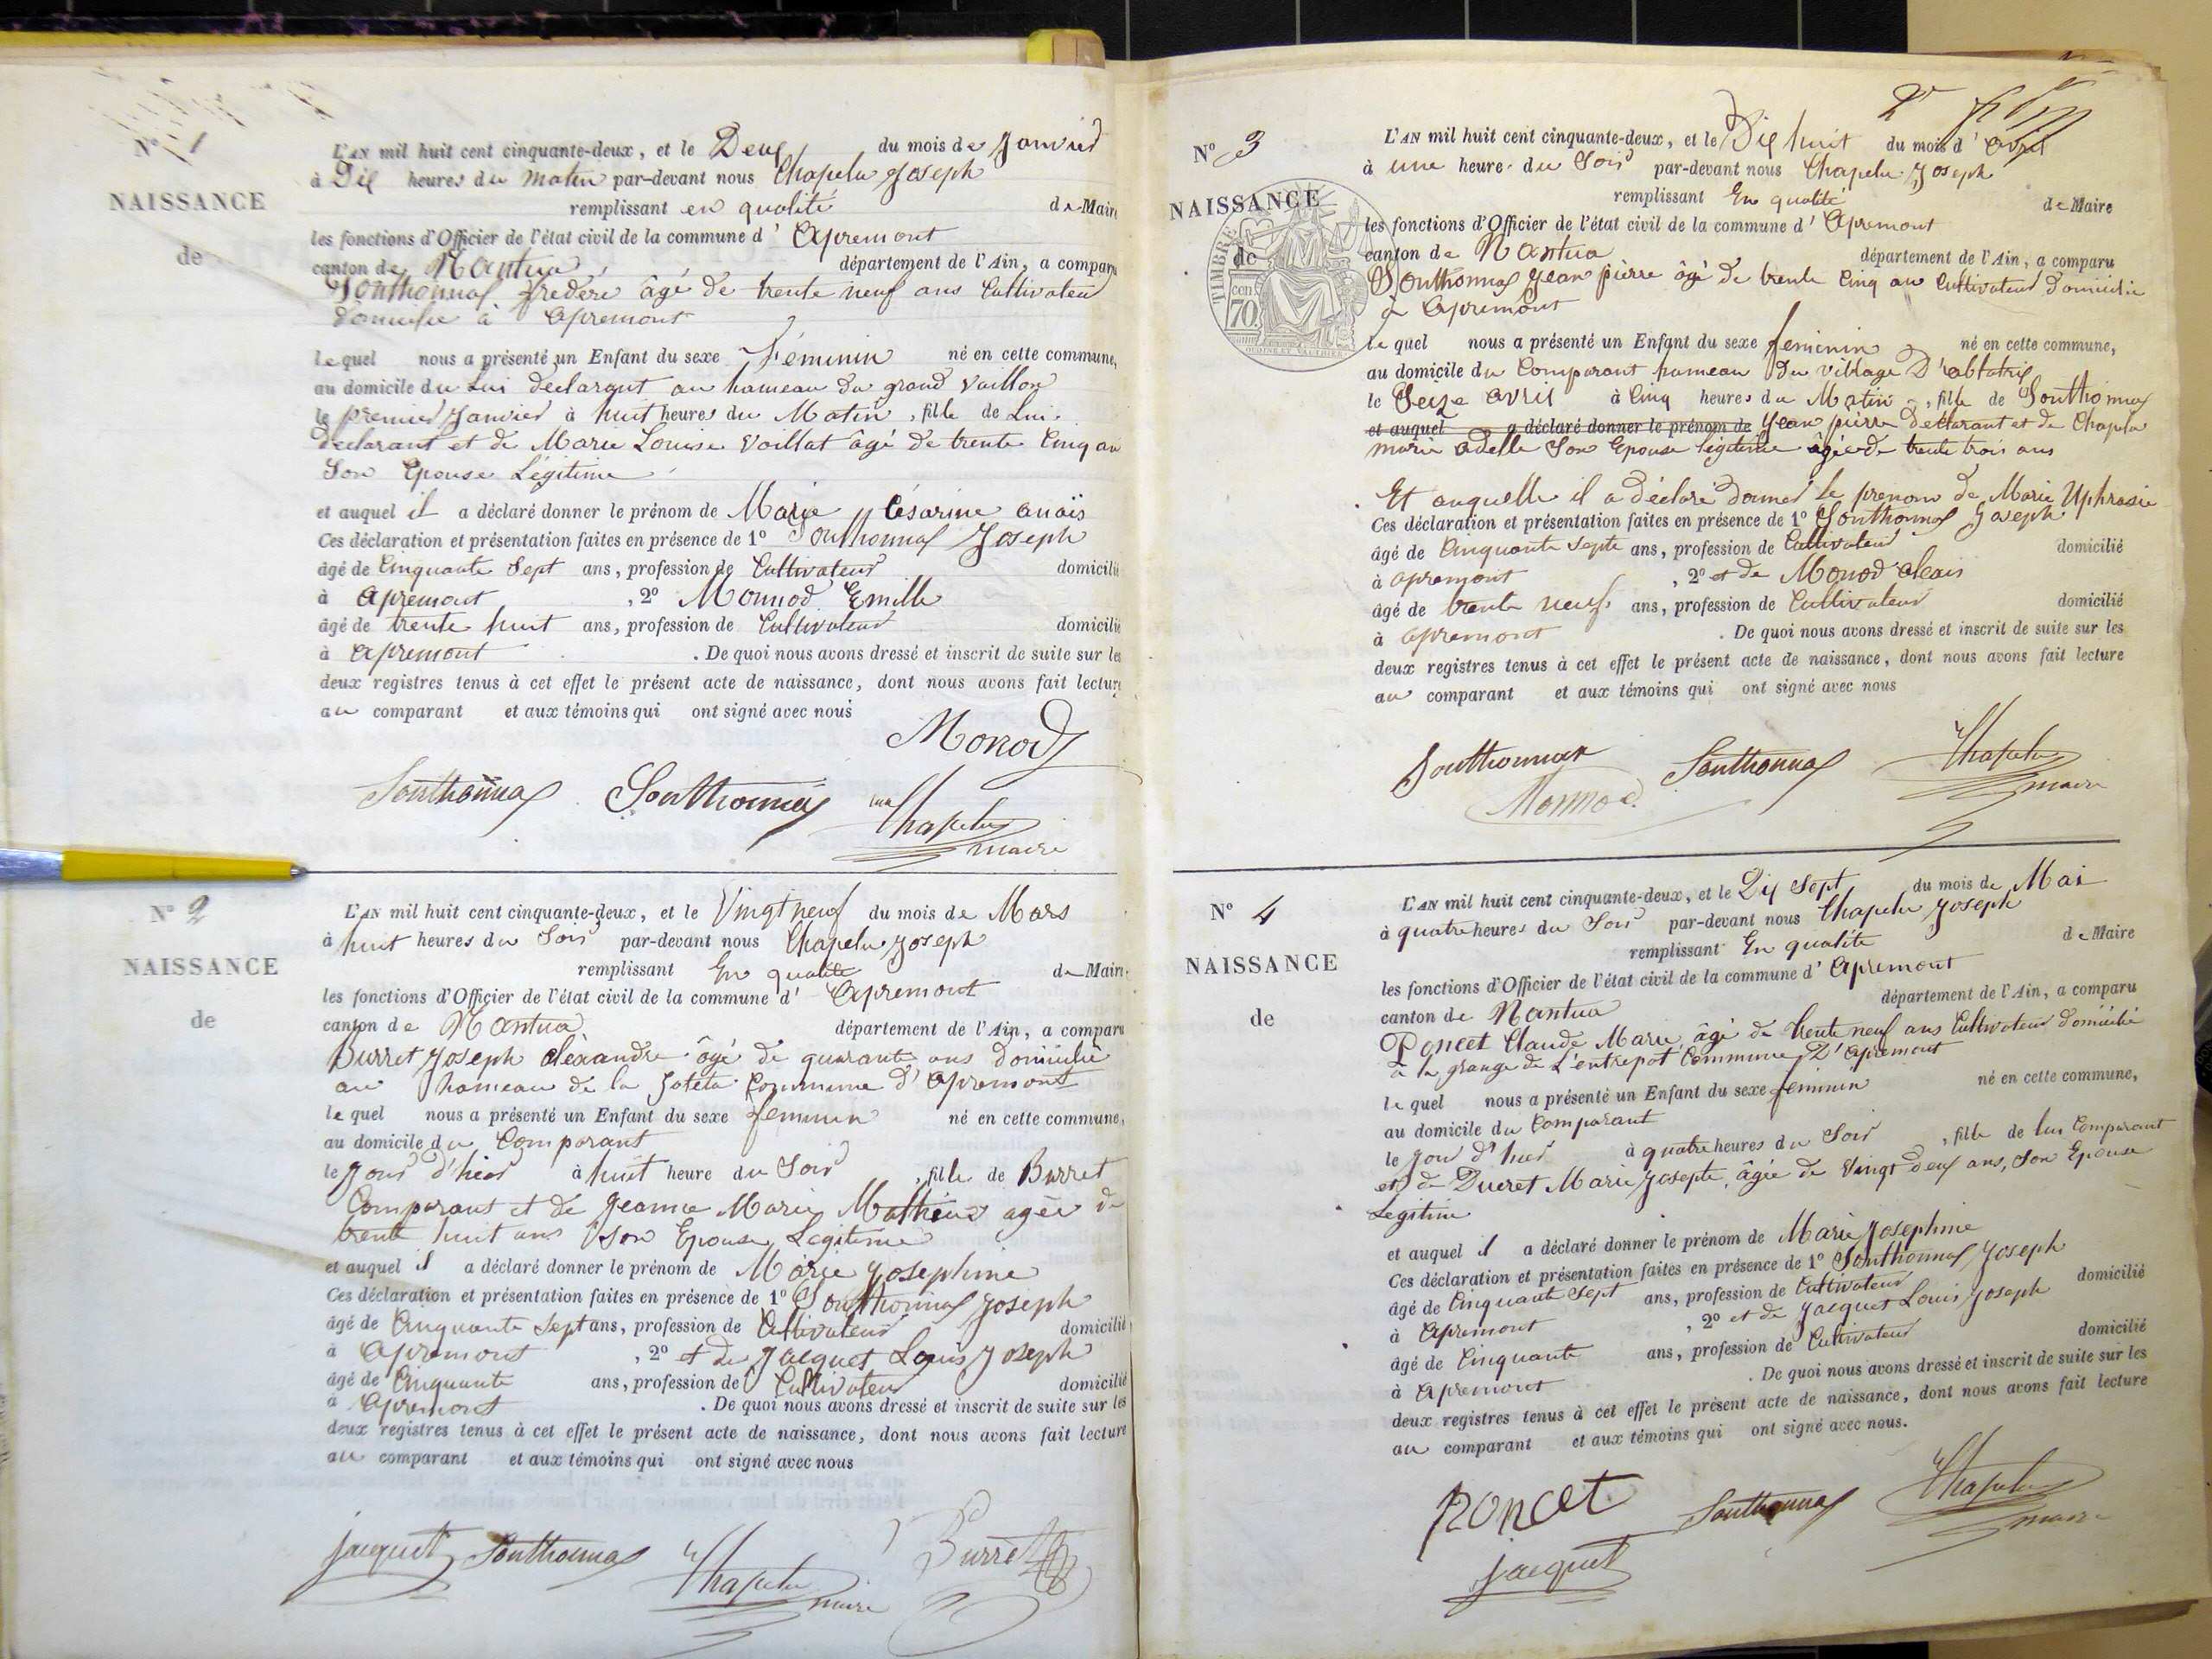 N° 1
NAISSANCE
de
L'AN mil huit cent cinquante-deux, et le Deux du mois de Janvier
à Dix heures du Matin par-devant nous Chapelu Joseph
remplissant en qualité de Maire
les fonctions d'Officier de l'état civil de la commune d' Apremont
canton de Nantua département de l'Ain, a comparu
Sonthonnax frederi âgé de trente neuf ans Cultivateur
domicilie à Apremont
le quel nous a présenté un Enfant du sexe Féminin né en cette commune,
au domicile du Lui déclarant au hameau du grand Vaillon
le premier Janvier à huit heures du Matin, fille de Lui
déclarant et de Marie Louise Voillat âgé de trente Cinq an
Son Epouse Légitime
et auquel il a déclaré donner le prénom de Marie Césarine anaïs
Ces déclaration et présentation faites en présence de 1° Sonthonnax Joseph
âgé de Cinquante Sept ans, profession de Cultivateur domicilié
à Apremont , 2° Monnod Emille
âgé de trente huit ans, profession de Cultivateur domicilié
à Apremont . De quoi nous avons dressé et inscrit de suite sur les
deux registres tenus à cet effet le présent acte de naissance, dont nous avons fait lecture
au comparant et aux témoins qui ont signé avec nous
Monod
Sonthonnax Sonthonnax Chapelu
maire
N° 2
NAISSANCE
de
L'AN mil huit cent cinquante-deux, et le Vingt neuf du mois de Mars
à huit heures du Soir par-devant nous Chapelu Joseph
remplissant En qualité de Maire
les fonctions d'Officier de l'état civil de la commune d' Apremont
canton de Nantua département de l'Ain, a comparu
Burret Joseph Alexandre âgé de quarante ans domicilié
au hameau de la Commune d'Apremont
le quel nous a présenté un Enfant du sexe feminin né en cette commune,
au domicile du Comparant
le Jour d'hier à huit heure du Soir , fille de Burret
Comparant et de Jeanne Marie Mathieu agée de
trente huit ans Son Epouse Legitime
et auquel il a déclaré donner le prénom de Marie Josephine
Ces déclaration et présentation faites en présence de 1° Sonthonnax Joseph
âgé de Cinquante Sept ans, profession de Cultivateur domicilié
à Apremont , 2° et de Jacquet Louis Joseph
âgé de Cinquante ans, profession de Cultivateur domicilié
à Apremont . De quoi nous avons dressé et inscrit de suite sur les
deux registres tenus à cet effet le présent acte de naissance, dont nous avons fait lecture
au comparant et aux témoins qui ont signé avec nous
jacquet Sonthonnax Chapelu Burret
maire
N° 3
NAISSANCE
de
TIMBRE
70
L'AN mil huit cent cinquante-deux, et le Dix huit du mois d' Avril
à une heure du Soir par-devant nous Chapelu Joseph
remplissant En qualité de Maire
les fonctions d'Officier de l'état civil de la commune d' Apremont
canton de Nantua département de l'Ain, a comparu
Sonthonnax Jean pierre âgé de trente Cinq an Cultivateur Domicilié
à Apremont
le quel nous a présenté un Enfant du sexe feminin né en cette commune,
au domicile du Comparant hameau du village
le Seize avril à Cinq heures du Matin , fille de Sonthonnax
et auquel a déclaré donner le prénom de Jean pierre Déclarant et de Chapelu
marie adelle Son Epouse légitime âgée de trente trois ans
Et auquelle il a déclaré donner Le prenom de Marie Uphrasie
Ces déclaration et présentation faites en présence de 1° Sonthonnax Joseph
âgé de Cinquante Septe ans, profession de Cultivateur domicilié
à Apremont , 2° et de Monod alexis
âgé de trente neuf ans, profession de Cultivateur domicilié
à Apremont . De quoi nous avons dressé et inscrit de suite sur les
deux registres tenus à cet effet le présent acte de naissance, dont nous avons fait lecture
au comparant et aux témoins qui ont signé avec nous
Sonthonnax Sonthonnax Chapelu
Monnod maire
N° 4
NAISSANCE
de
L'AN mil huit cent cinquante-deux, et le Dix Sept du mois de Mai
à quatre heures du Soir par-devant nous Chapelu Joseph
remplissant En qualité de Maire
les fonctions d'Officier de l'état civil de la commune d' Apremont
canton de Nantua département de l'Ain, a comparu
Poncet Claude Marie, âgé de trente neuf ans Cultivateur domicilié
à la grange de L'entrepot Commune D'Apremont
le quel nous a présenté un Enfant du sexe feminin né en cette commune,
au domicile du Comparant
le Jour d'hier à quatre heures du Soir , fille de lui Comparant
et de Ducret Marie Josepte, âgée de Vingt deux ans, Son Epouse
Legitime
et auquel il a déclaré donner le prénom de Marie Josephine
Ces déclaration et présentation faites en présence de 1° Sonthonnax Joseph
âgé de Cinquante Sept ans, profession de Cultivateur domicilié
à Apremont , 2° et de Jacquet Louis Joseph
âgé de Cinquante ans, profession de Cultivateur domicilié
à Apremont . De quoi nous avons dressé et inscrit de suite sur les
deux registres tenus à cet effet le présent acte de naissance, dont nous avons fait lecture
au comparant et aux témoins qui ont signé avec nous.
poncet Sonthonnax Chapelu
jacquet maire